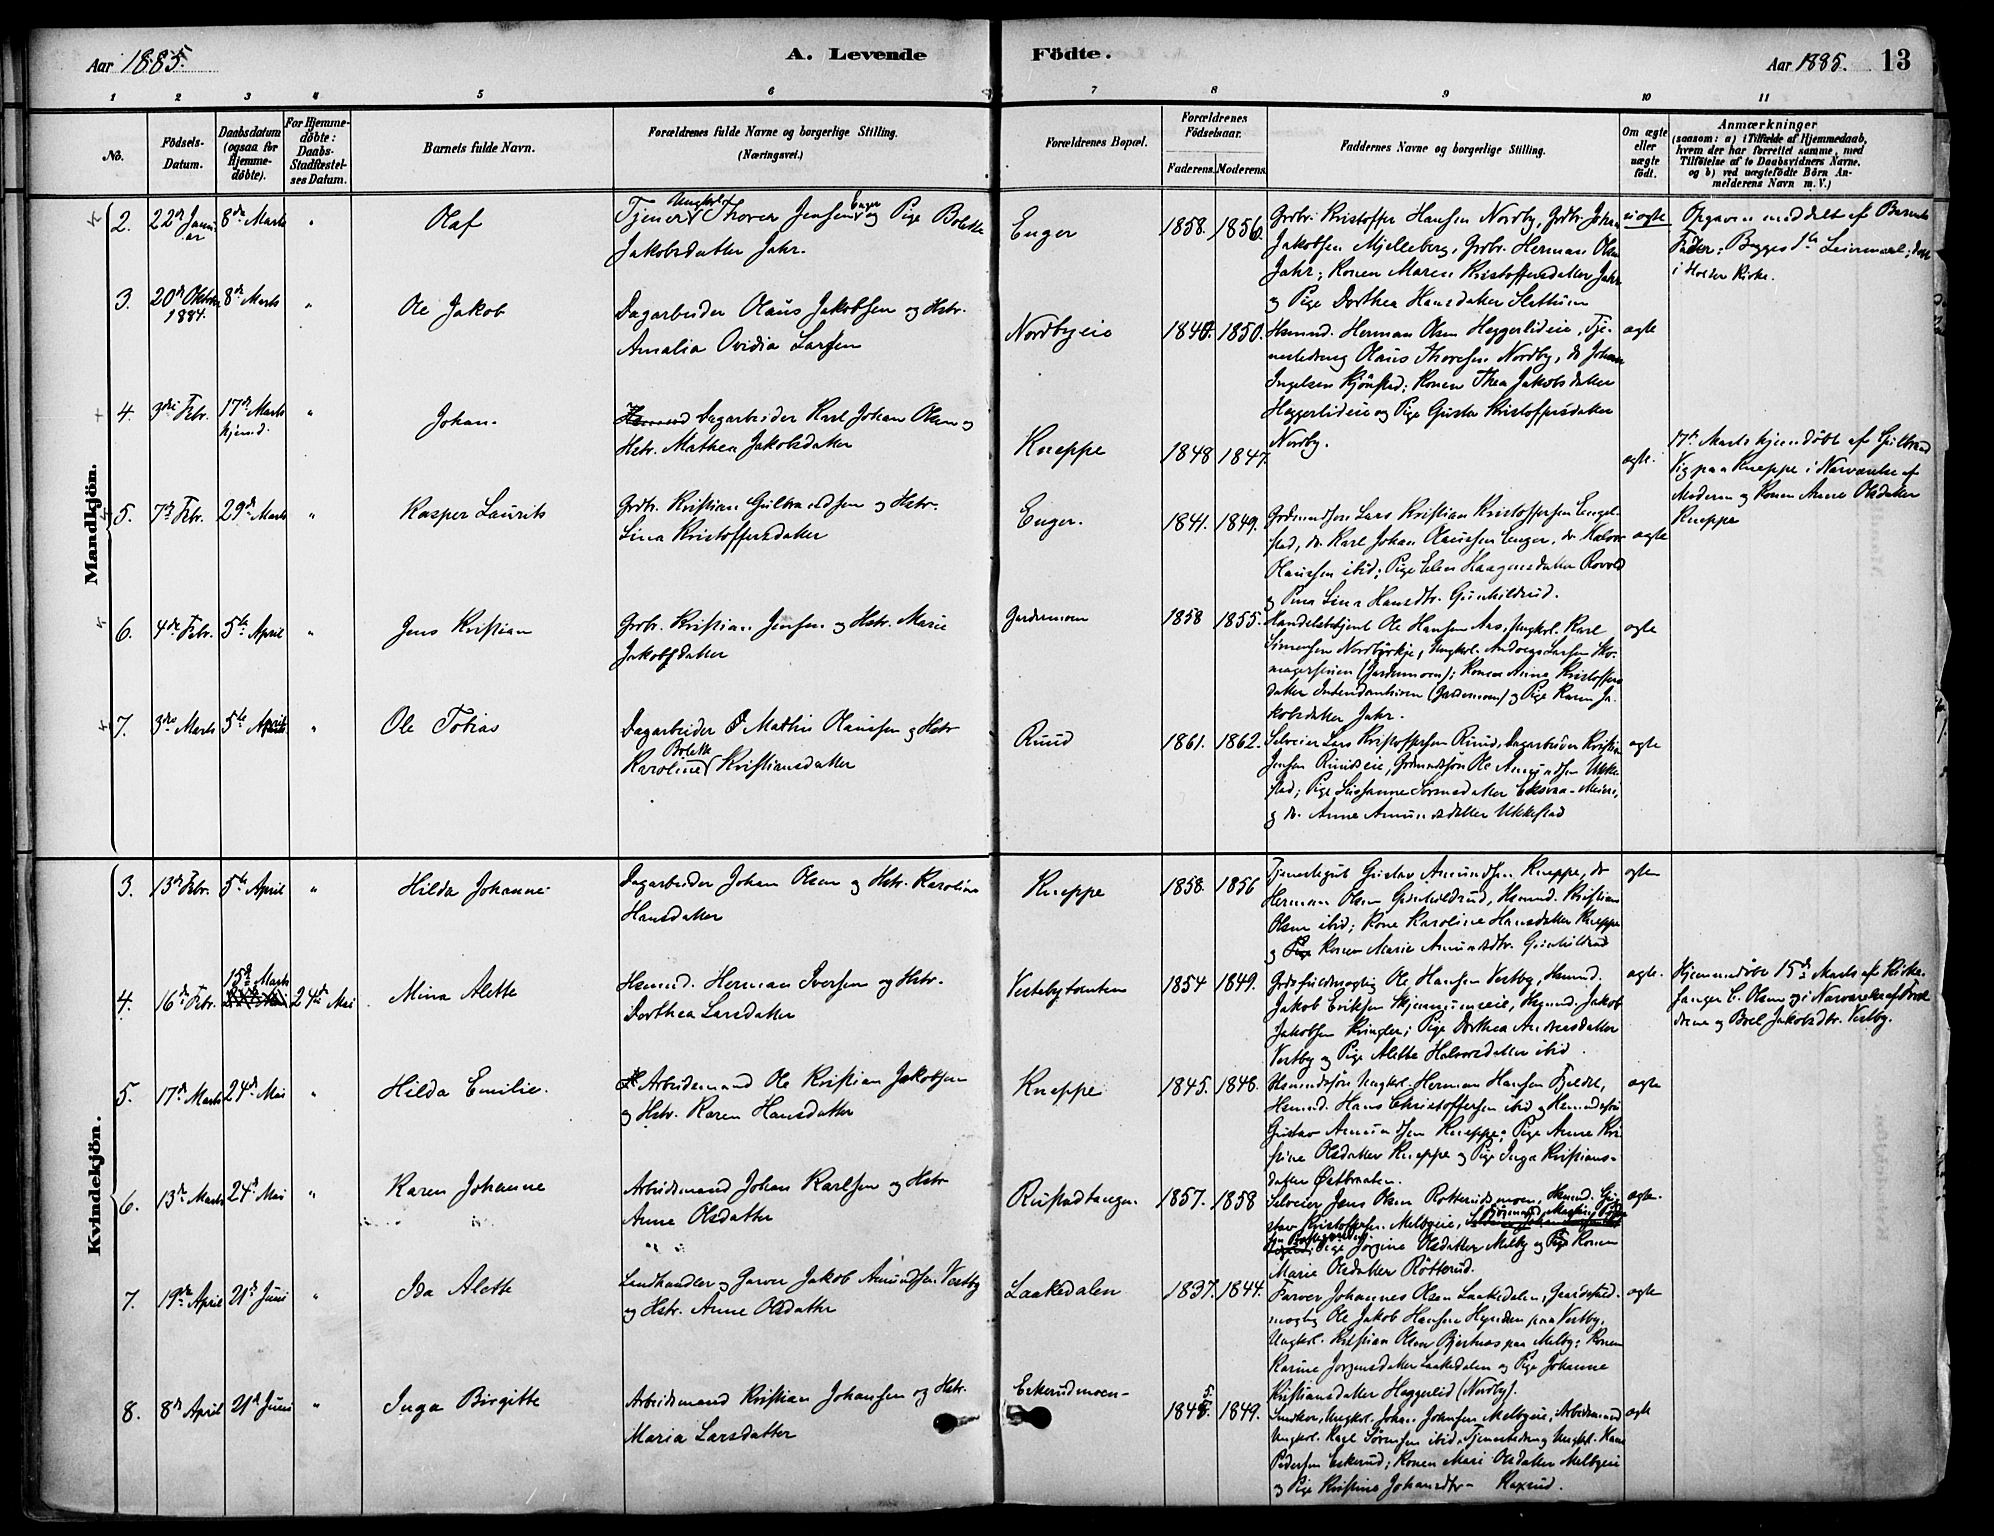 Aar 1885.
A. Levende
Födte.
Aar 1885.
13
1 2 3 4 5 6 7 8 9 10 11
No.
Födsels-
Datum.
Daabsdatum
(ogsaa for
Hjemme-
döbte).
For Hjemme-
döbte:
Daabs-
Stadfæstel-
ses Datum.
Barnets fulde Navn.
Forældrenes fulde Navne og borgerlige Stilling.
(Næringsvei.)
Forældrenes Bopæl.
Forældrenes
Födselsaar.
Faderens.
Moderens.
Faddernes Navne og borgerlige Stilling.
Om ægte
eller
uægte
födt.
Anmærkninger
(saasom: a) i Tilfælde af Hjemmedaab,
hvem der har forrettet samme, med
Tilföielse af to Daabsvidners Navne.
og b) ved uægtefödte Börn An-
melderens Navn m. V.)
Mandkjön.
2. 22de Janu-
ar
8de Marts
"
Olaf
Tjener Ungkarl Thorer Jensen Enger og Pige Bolette
Jakobsdatter Jahr.
Enger
1858. 1856.
Grdbr. Kristoffer Hansen Nordby, Grdbr. Johan
Jakobsen Mjelleberg, Grdbr. Herman Olsen
Jahr; Konen Maren Kristoffersdatter Jahr
og Pige Dorthea Hansdatter
uægte
Opgaven meddelt af Barnets
Fader; Begges 1ste Leiermaal; döbt
i Holter Kirke.
3. 20de Oktober
1884.
8de Marts
"
Ole Jakob
Dagarbeider Olaus Jakobsen og Hstr.
Amalia Ovidia Larsen
Nordbyeie
1850.
Hsmnd. Herman Olsen Heggerlideie, Tje-
nestedreng Olaus Thoresen Nordby, do Johan
Ingelsen Kjönstad; Konen Thea Jakobsdatter
Heggerlideie og Pige Gusta Kristoffersdatter
Nordby.
ægte
4. 3die Febr.
17de Marts
hjemd.
"
Johan.
Dagarbeider Karl Johan Olsen og
Hstr. Mathea Jakobsdatter
Kneppe
1848 1847.
ægte.
17de Marts hjemdöbt af Gulbrand
Vig paa Kneppe i Nærværelse af
Moderen og Konen Anne Olsdatter
Kneppe
5. 7de Febr.
29de Marts
"
Kasper Laurits
Grdbr. Kristian Gulbrandsen og Hstr.
Lina Kristoffersdatter
Enger.
1841. 1849.
Grdmandssön Lars Kristian Kristoffersen Engel-
stad, do Karl Johan Olaussen Enger, do Halvor
Olaussen ibid; Pige Elen Haagensdatter Rovold
og Pige Lina Hansdtr. Gunhildrud.
ægte
6. 4de Febr.
5te April
"
Jens Kristian
Grdbr. Kristian Jensen og Hstr. Marie
Jakobsdatter
Gardermoen
1858 1855.
Handelsbetjent Ole Hansen Aas, Ungkarl Karl
Simensen Nordbykirke, Ungkl. Andreas Larsen Sko-
magerstuen (Gardermoen); Konen Anne Kristoffers-
datter Intendanthuen (Gardermoen) og Pige Karen Ja-
kobsdatter Jahr.
ægte
7. 3die Marts
5te April
"
Ole Tobias
Dagarbeider Mathis Olaussen og Hstr
Karoline Bolette Kristiansdatter
Ruud
1861. 1862.
Selveier Lars Kristoffersen Ruud, Dagarbeider Kristian
Jensen Ruudseie, Grdmandssön Ole Amundsen Ukke-
stad; Pige Susanne
og do. Anne Amundsdatter Ukkestad
ægte
Kvindekjön.
3. 13de Febr.
5te April
"
Hilda Johanne
Dagarbeider Johan Olsen og Hstr. Karoline
Hansdatter
Kneppe
1858. 1856
Tjenestegut Gustav Amundsen Kneppe, do
Herman Olsen Gunhildrud, Hsmnd. Kristian
Olsen ibid; Kone Karoline Hansdatter Kneppe
og Konen Marie Amundsdtr. Gunhildrud
ægte
4. 16de Febr.
15de Marts
24de Mai
Mina Alette
Hsmnd. Herman Iversen og Hstr.
Dorthea Larsdatter
Vestbytomten
1854 1849.
Ole Hansen Vestby, Hsmnd.
Jakob Eriksen Skjennumseie, Hsmnd. Jakob
Jakobsen Kringler; Pige Dorthea Andersdatter
Vestby og Pige Alette Halvorsdatter ibid.
ægte.
Hjemmedöbt 15de Marts af Kirke-
sanger C. Olsen i Nærværelse af Foræl-
drene og Boel Jakobsdtr. Vestby.
5. 17de Marts
24de Mai
"
Hilda Emilie.
Arbeidsmand Ole Kristian Jakobsen
og Hstr. Karen Hansdatter
Kneppe
1845. 1848.
Hsmndssön Ungkl. Herman Hansen Fjeldet,
Hsmnd. Hans Christoffersen ibid og Hsmndssön
Gustav Amundsen Kneppe; Pige Anne Kri-
stine Olsdatter Kneppe og Pige Inga Kristians-
datter Østbraaten.
ægte
6. 13de Marts
24de Mai
"
Karen Johanne
Arbeidsmand Johan Karlsen og Hstr
Anne Olsdatter
Rustadtangen.
1857. 1858
Selveier Jens Olsen Rotterudsmoen, Hsmnd. Gu-
stav Kristoffersen Melbyeie,
Pige Jörgine Olsdatter Melby og Konen
Marie Olsdatter Rötterud.
ægte.
7. 19de April
21de Juni
"
Ida Alette
Landhandler og Garver Jakob Amundsen Vestby
og Hstr. Anne Olsdatter
Laakedalen
1837. 1844.
Farver Johannes Olsen Laakedalen, Gaardsfuld-
mægtig Ole Jakob Hansen paa Vestby,
Ungkl. Kristian Olsen Bjertnes paa Melby; Konen
Karine Jörgensdatter Laakedalen og Pige Johanne
Kristiansdatter Heggerlid (Nordby).
ægte
8. 8de April
21de Juni
"
Inga Birgitte
Arbeidsmand Kristian Johansen og Hstr.
Maria Larsdatter
Eskerudmoen
1845. 1849.
Ungkl. Johan Johansen Melbyeie, Arbeidsmand
Ungkl. Karl Sörensen ibid, Tjenestedreng Ungkl. Hans
Pedersen Eskerud; Konen Mari Olsdatter Melbyeie
og Pige Kristine Johansdtr.
ægte